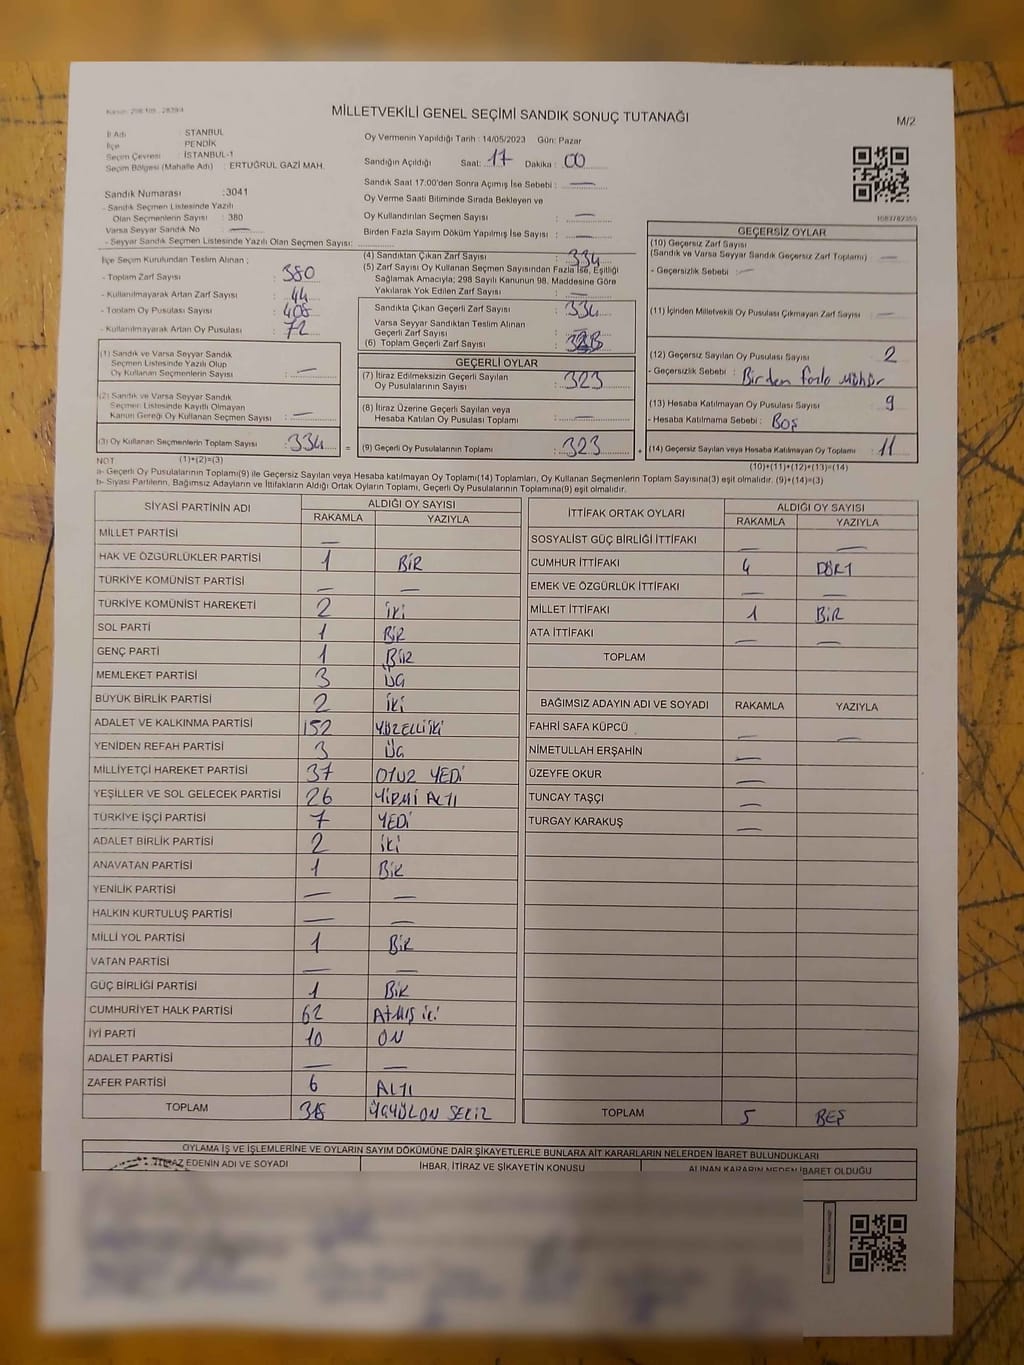 Kanun: 298 Md.: 283/94
MİLLETVEKİLİ GENEL SEÇİMİ SANDIK SONUÇ TUTANAĞI
M/2
İl Adı : STANBUL
İlçe : PENDİK
Seçim Çevresi : İSTANBUL-1
Seçim Bölgesi (Mahalle Adı) : ERTUĞRUL GAZİ MAH.
Oy Vermenin Yapıldığı Tarih : 14/05/2023 Gün: Pazar
Sandığın Açıldığı Saat: 17 Dakika : 00
Sandık Saat 17:00'den Sonra Açımış İse Sebebi : —
Oy Verme Saati Bitiminde Sırada Bekleyen ve
Oy Kullandırılan Seçmen Sayısı : —
Birden Fazla Sayım Döküm Yapılmış İse Sayısı : —
Sandık Numarası :3041
- Sandık Seçmen Listesinde Yazılı
Olan Seçmenlerin Sayısı : 380
Varsa Seyyar Sandık No : —
- Seyyar Sandık Seçmen Listesinde Yazılı Olan Seçmen Sayısı:
İlçe Seçim Kurulundan Teslim Alınan ;
- Toplam Zarf Sayısı : 380
- Kullanılmayarak Artan Zarf Sayısı : 44
- Toplam Oy Pusulası Sayısı : 408
- Kullanılmayarak Artan Oy Pusulası : 72
(1) Sandık ve Varsa Seyyar Sandık
Seçmen Listesinde Yazılı Olup
Oy Kullanan Seçmenlerin Sayısı : —
(2) Sandık ve Varsa Seyyar Sandık
Seçmen Listesinde Kayıtlı Olmayan
Kanun Gereği Oy Kullanan Seçmen Sayısı : —
(3) Oy Kullanan Seçmenlerin Toplam Sayısı : 334 =
(4) Sandıktan Çıkan Zarf Sayısı : 334
(5) Zarf Sayısı Oy Kullanan Seçmen Sayısından Fazla İse, Eşitliği
Sağlamak Amacıyla; 298 Sayılı Kanunun 98. Maddesine Göre
Yakılarak Yok Edilen Zarf Sayısı : —
Sandıkta Çıkan Geçerli Zarf Sayısı : 334
Varsa Seyyar Sandıktan Teslim Alınan
Geçerli Zarf Sayısı
(6) Toplam Geçerli Zarf Sayısı :
GEÇERLİ OYLAR
(7) İtiraz Edilmeksizin Geçerli Sayılan
Oy Pusulalarının Sayısı : 323
(8) İtiraz Üzerine Geçerli Sayılan veya
Hesaba Katılan Oy Pusulası Toplamı : —
(9) Geçerli Oy Pusulalarının Toplamı : 323 +
GEÇERSİZ OYLAR
(10) Geçersiz Zarf Sayısı
(Sandık ve Varsa Seyyar Sandık Geçersiz Zarf Toplamı) : —
- Geçersizlik Sebebi : —
(11) İçinden Milletvekili Oy Pusulası Çıkmayan Zarf Sayısı : —
(12) Geçersiz Sayılan Oy Pusulası Sayısı : 2
- Geçersizlik Sebebi : Birden fazla mühür
(13) Hesaba Katılmayan Oy Pusulası Sayısı : 9
- Hesaba Katılmama Sebebi : Boş
(14) Geçersiz Sayılan veya Hesaba Katılmayan Oy Toplamı : 11
NOT (1)+(2)=(3)
(10)+(11)+(12)+(13)=(14)
a- Geçerli Oy Pusulalarının Toplamı(9) ile Geçersiz Sayılan veya Hesaba katılmayan Oy Toplamı(14) Toplamları, Oy Kullanan Seçmenlerin Toplam Sayısına(3) eşit olmalıdır. (9)+(14)=(3)
b- Siyasi Partilerin, Bağımsız Adayların ve İttifakların Aldığı Ortak Oyların Toplamı, Geçerli Oy Pusulalarının Toplamına(9) eşit olmalıdır.
SİYASİ PARTİNİN ADI ALDIĞI OY SAYISI
RAKAMLA YAZIYLA
MİLLET PARTİSİ —
HAK VE ÖZGÜRLÜKLER PARTİSİ 1 BİR
TÜRKİYE KOMÜNİST PARTİSİ — —
TÜRKİYE KOMÜNİST HAREKETİ 2 iKi
SOL PARTİ 1 BİR
GENÇ PARTİ 1 BİR
MEMLEKET PARTİSİ 3 ÜÇ
BÜYÜK BİRLİK PARTİSİ 2 İKİ
ADALET VE KALKINMA PARTİSİ 152 YÜZELLİİKİ
YENİDEN REFAH PARTİSİ 3 ÜÇ
MİLLİYETÇİ HAREKET PARTİSİ 37 OTUZ YEDİ
YEŞİLLER VE SOL GELECEK PARTİSİ 26 YİRMİ ALTI
TÜRKİYE İŞÇİ PARTİSİ 7 YEDİ
ADALET BİRLİK PARTİSİ 2 iKi
ANAVATAN PARTİSİ 1 BİR
YENİLİK PARTİSİ — —
HALKIN KURTULUŞ PARTİSİ — —
MİLLİ YOL PARTİSİ 1 BİR
VATAN PARTİSİ — —
GÜÇ BİRLİĞİ PARTİSİ 1 BİR
CUMHURİYET HALK PARTİSİ 62 ATMIŞ iKi
İYİ PARTİ 10 ON
ADALET PARTİSİ — —
ZAFER PARTİSİ 6 ALTI
TOPLAM SEKİZ
İTTİFAK ORTAK OYLARI ALDIĞI OY SAYISI
RAKAMLA YAZIYLA
SOSYALİST GÜÇ BİRLİĞİ İTTİFAKI — —
CUMHUR İTTİFAKI 4 DÖRT
EMEK VE ÖZGÜRLÜK İTTİFAKI — —
MİLLET İTTİFAKI 1 BİR
ATA İTTİFAKI — —
TOPLAM
BAĞIMSIZ ADAYIN ADI VE SOYADI RAKAMLA YAZIYLA
FAHRİ SAFA KÜPCÜ — —
NİMETULLAH ERŞAHİN —
ÜZEYFE OKUR —
TUNCAY TAŞÇI —
TURGAY KARAKUŞ —
TOPLAM 5 BEŞ
OYLAMA İŞ VE İŞLEMLERİNE VE OYLARIN SAYIM DÖKÜMÜNE DAİR ŞİKAYETLERLE BUNLARA AİT KARARLARIN NELERDEN İBARET BULUNDUKLARI
İTİRAZ EDENİN ADI VE SOYADI İHBAR, İTİRAZ VE ŞİKAYETİN KONUSU ALINAN KARARIN NEDEN İBARET OLDUĞU